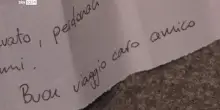 vato, perdonali
umi.
Buon viaggio caro amico